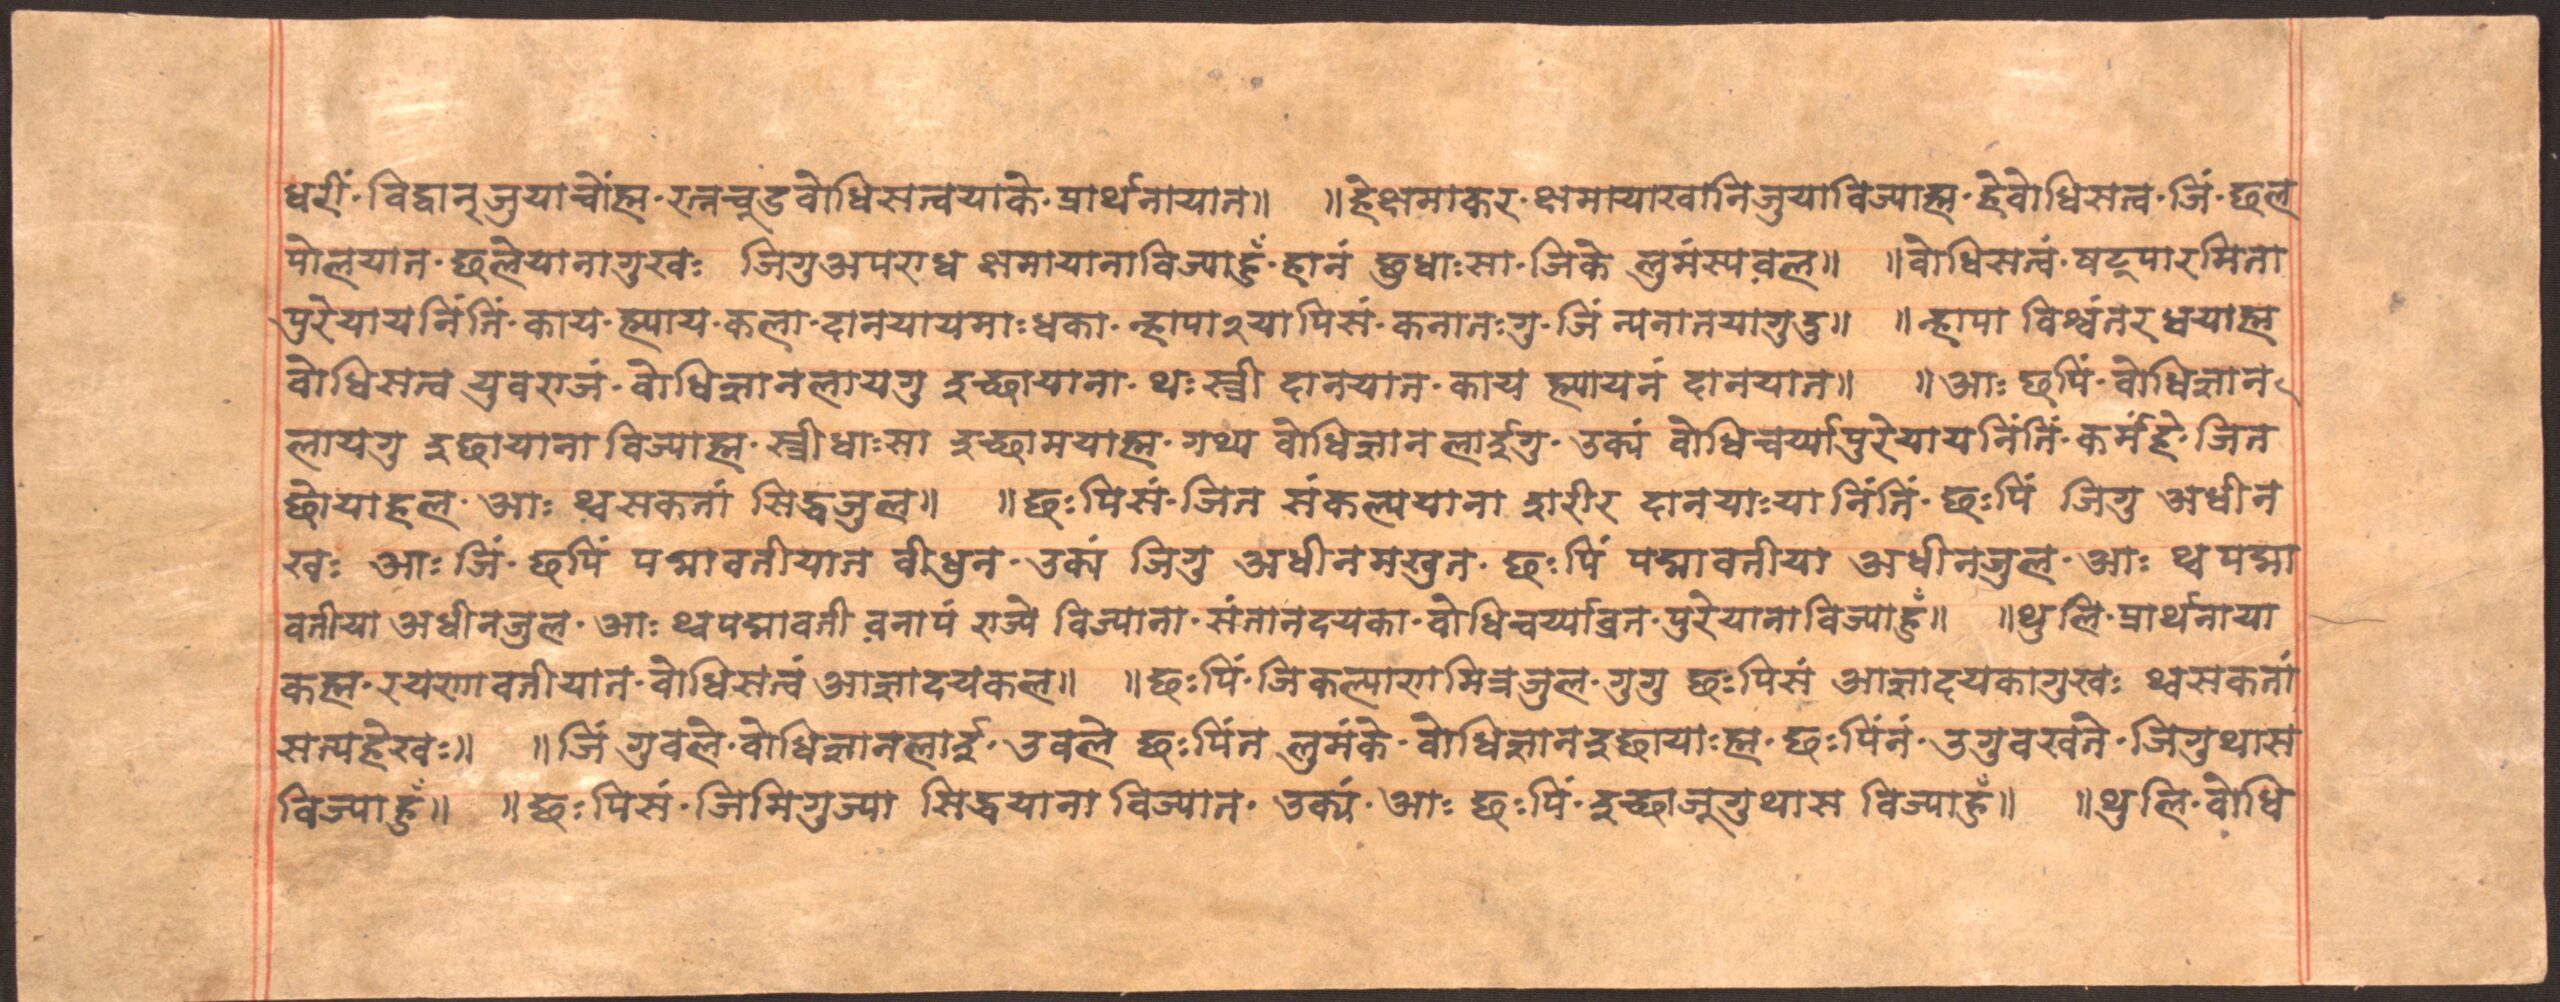 धरीं·विद्वान्जुयाचोंह्म·रत्नचूडवोधिसत्वयाके·प्रार्थनायात॥ ॥हेक्षमाकर·क्षमायाखानिजुयाविज्याह्म·हेवोधिसत्व·जिं·छल
पोलयात·छलेयानागुखः जिगुअपराध क्षमायानाविज्याहुँ·हानं छुधाःसा·जिके लुमंस्यवल॥ ॥वोधिसत्वं·षट्पारमिता
पुरेयायनिंतिं·काय·ह्म्याय·कला·दानयायमाःधका·न्हापा२यापिसं·कनातःगु·जिं न्यनातयागुदु॥ ॥न्हापा विश्वंतरधयाह्म
वोधिसत्व युवराजं·वोधिज्ञानलायगु इच्छायाना·थःस्त्री दानयात·काय ह्म्यायनं दानयात॥ ॥आः छपिं·वोधिज्ञान
लायगु इछायाना विज्याह्म·स्त्रीधाःसा इच्छामयाह्म·गथ्य वोधिज्ञान लाईगु·उक्यं वोधिचर्य्यापुरेयायनिंतिं·कर्महे·जित
छोयाहल·आः थ्वसकतां सिद्धजुल॥ ॥छःपिसं·जित संकल्पयाना शरीर दानयाःया निंतिं·छःपिं जिगु अधीन
खः आः जिं·छपिं पद्मावतीयात वीधुन·उक्यं जिगु अधीनमखुत·छःपिं पद्मावतीया अधीनजुल·आः थ्व पद्मा
वतीया अधीनजुल·आः थ्वपद्मावती वनापं राज्ये विज्याना·संतानदयका·वोधिचर्य्याव्रत·पुरेयानाविज्याहुँ॥ ॥थुलि·प्रार्थनाया
कह्म·रयणावतीयात·वोधिसत्वं आज्ञादयकल॥ ॥छःपिं·जिकल्याणमित्रजुल·गुगु छःपिसं आज्ञादयकागुखः थ्वसकतां
सत्यहेखः॥ ॥जिं गुवले·वोधिज्ञानलाई·उवले छःपिंत लुमंके·वोधिज्ञानइछायाःह्म·छःपिंनं·उगुवखते·जिगुथास
विज्याहुँ॥ ॥छःपिसं·जिमिगुज्या सिद्धयाना विज्यात·उक्यं·आः छःपिं·इच्छाजूगुथास विज्याहुँ॥ ॥थुलि·वोधि